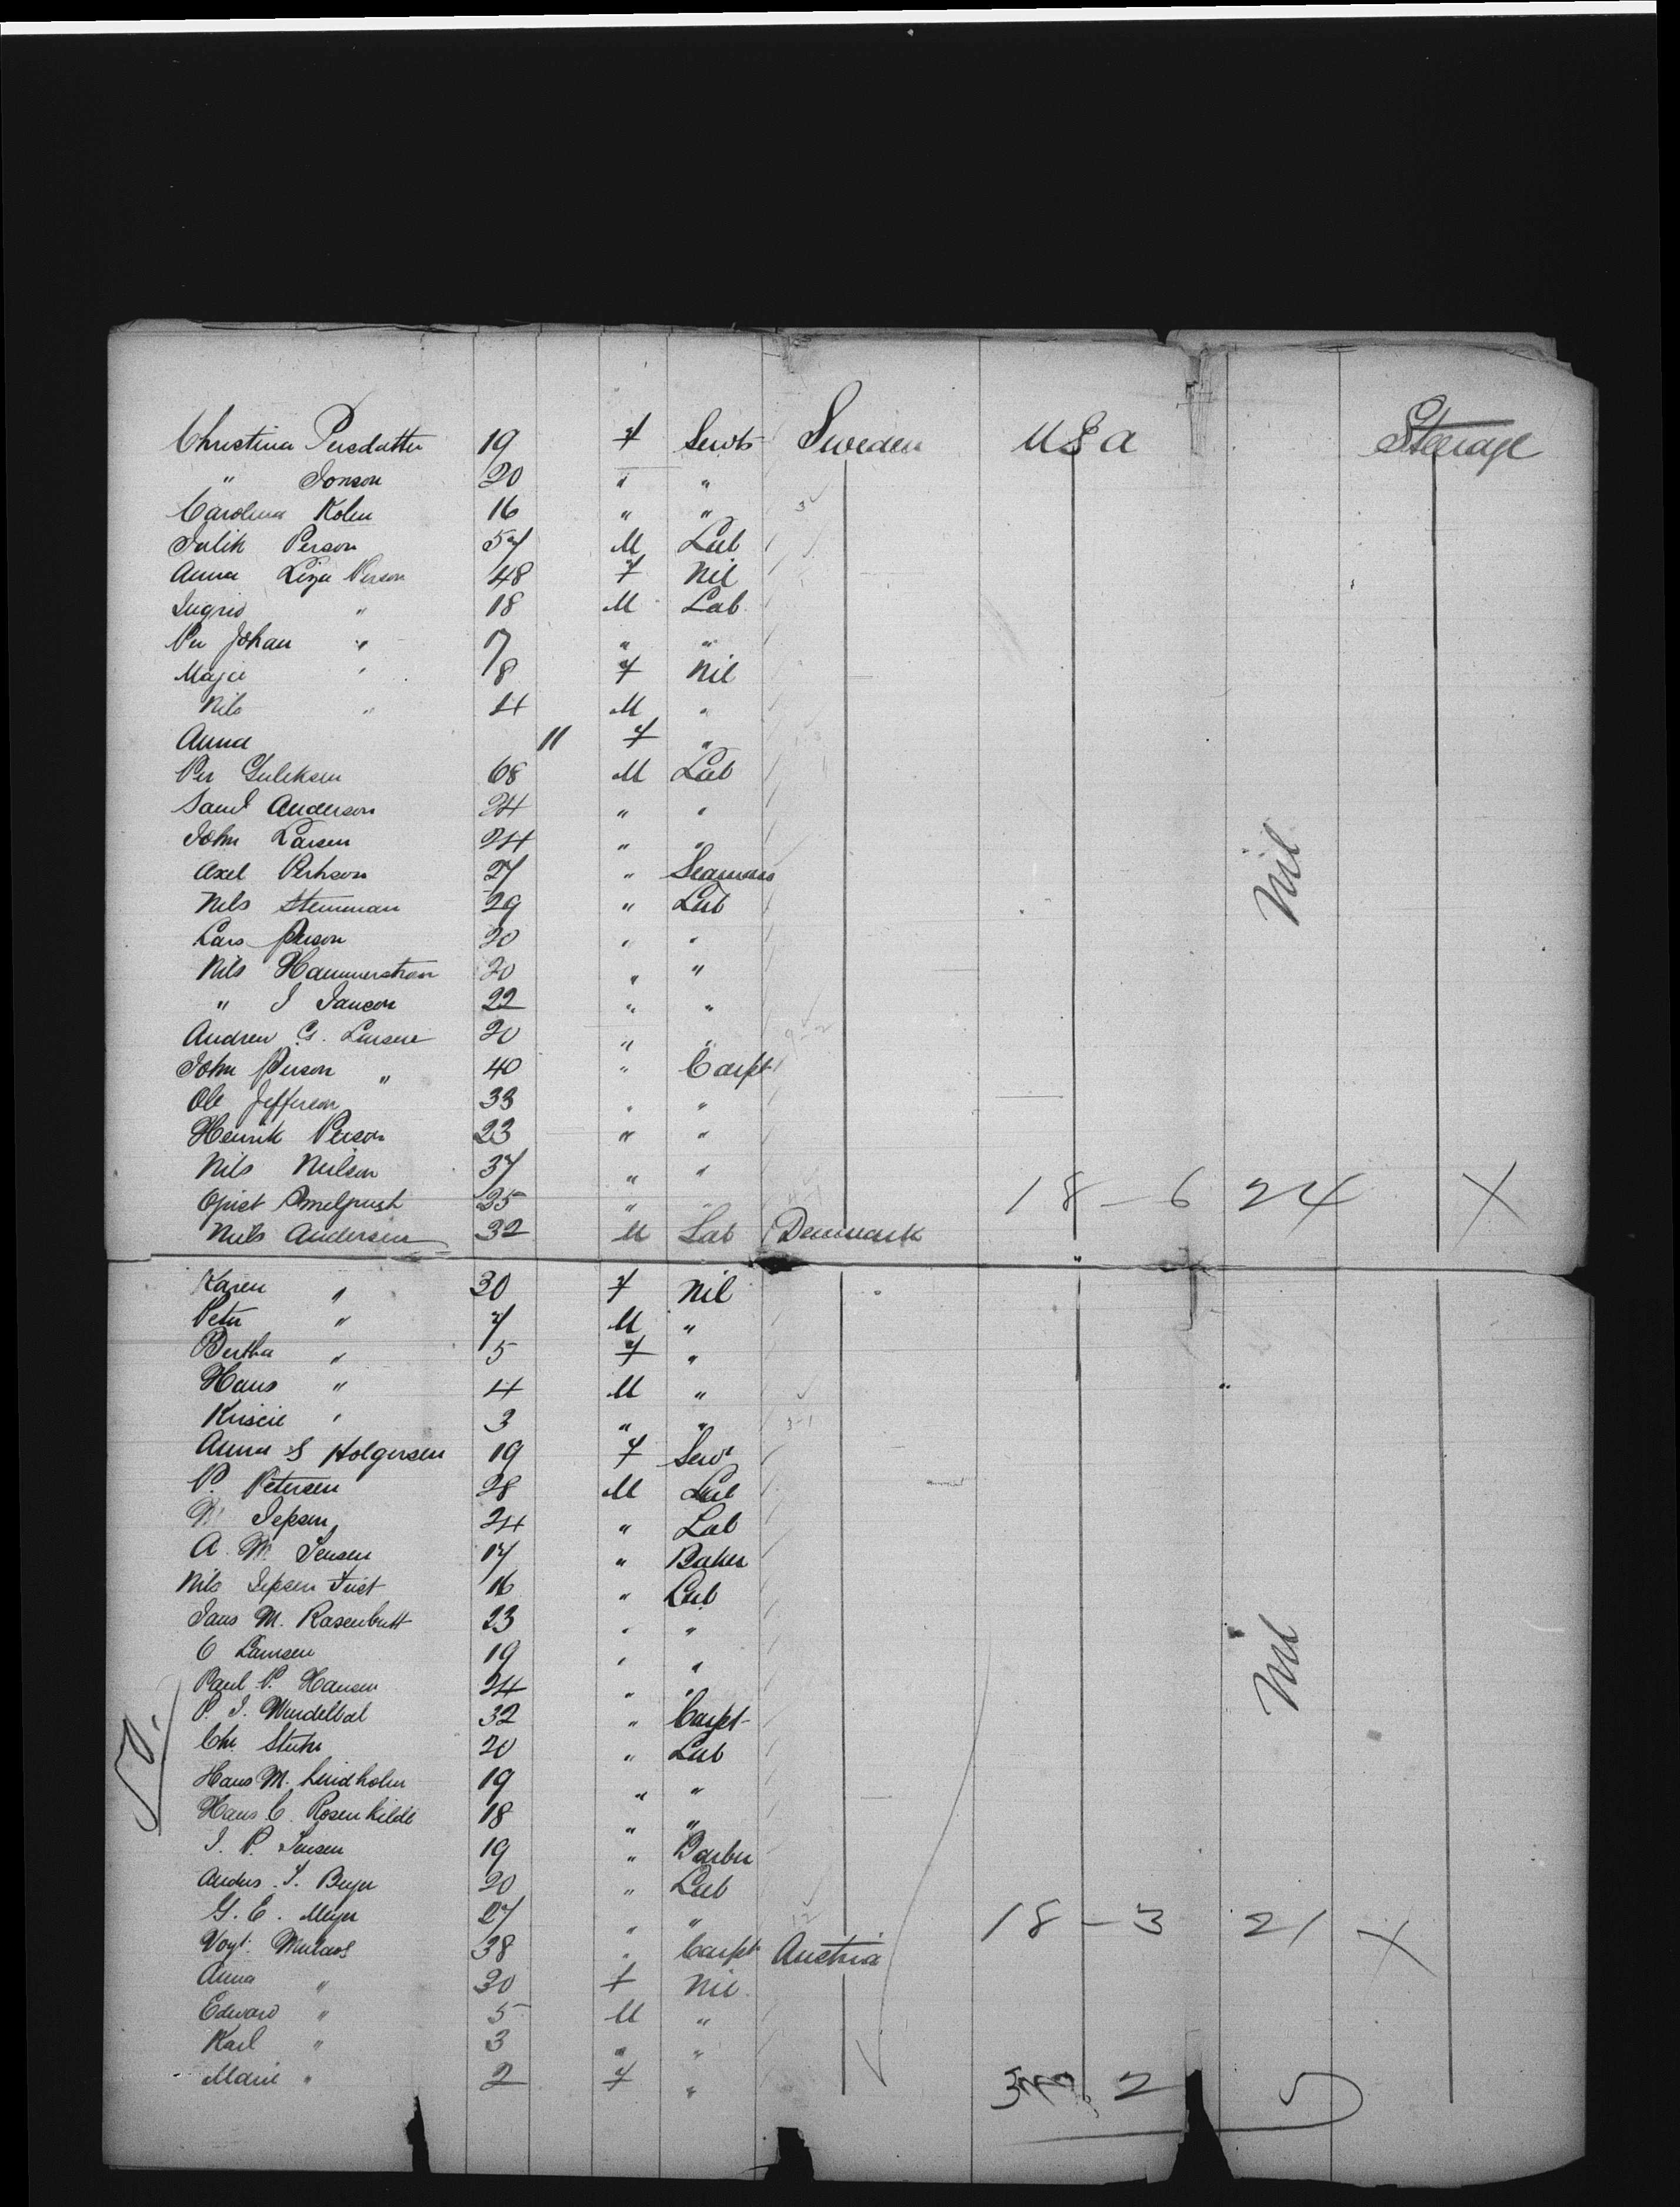 Christina Persdatter 19 f Servts Sweden U S A Steerage
" Jonson 20 " "
Carolina Kolm 16 " "
Person 57 M Lab
Anna Liza Person 48 f Nil
Ingrid " 18 M Lab
Per Johan " 17 " "
" 8 f Nil
Nils " 4 M "
Anna 11 f "
Per 68 M Lab
Saml Anderson 24 " "
John Larsen 24 " "
Axel 27 " Seaman
Nels Stenman 29 " Lab
Lars Person 20 " "
Nils 20 " "
" J 22 " "
Andrew G. 20 " "
John Person " 40 " Carpt
Ole Jefferson 33 " "
Henrik Person 23 " "
Nils 37 " "
35 " " 18 - 6 24 X
Nils Andersen 32 M Lab Denmark
Nil
Karen " 30 f Nil
Peter " 7 M "
Bertha " 5 f "
Hans " 4 M "
" 3 " "
Anna S Holgersen 19 f Serv
P. Petersen 28 M Lab
Jepsen 24 " Lab
A. M. Jensen 17 " Baker
Nils Jepsen 16 " Lab
Jans M. Rasenbutt 23 " "
C 19 " "
Paul P. Hansen 24 " "
P. J. Windelbal 32 " Carpt
Chr. 20 " Lab
Hans M. Lindholm 19 " "
Hans C. Rosenkilde 18 " "
J. P. Jensen 19 " Barber
Anders J. Beyer 20 " Lab
G. E. Meyer 27 " " 18 - 3 21 X
38 " Carpt Austria
Anna " 30 f Nil
Edward " 5 M "
Karl " 3 " "
Marie " 2 f " 3 2 5
Nil